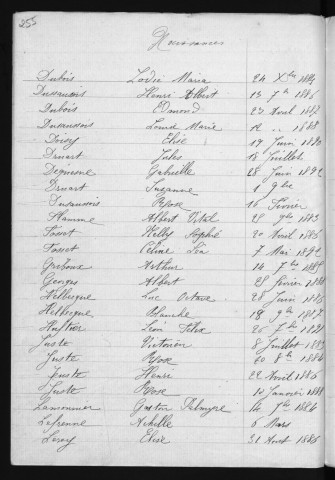 255
Naissances
Dubois Maria 24 Xbre
Dussausois Henri Albert 13 7bre 1886
Dubois Edmond 23 Avril 1887
Dussaussois Louis Marie 12 1888
Doisy Elise 19 Juin 1890
Druart Jules 18 Juillet
Gabrielle 28 Juin 1892
Druart Suzanne 1 9bre
Dussausois Rose 16 Février
Flamme Albert Vital 28 9bre 1883
Fosset Nelly Sophie 20 Avril 1885
Fosset Céline Léa 7 Mai 1892
Arthur 14 7bre 1885
Georges Albert 28 février 1886
Helbecque Luc Octave 28 Juin 1885
Helbecque Blanche 18 9bre 1887
Léon Félix 26 7bre
Juste Victorien 8 Juillet 1883
Juste Rose 20 8bre 1884
Juste Henri 22 Avril 1886
Juste Rose 10 Janvier 1888
Lemonnier Gaston Palmyre 14 7bre 1884
Lefrenne Achille 6 Mars
Leroy Elise 31 Aout 1886